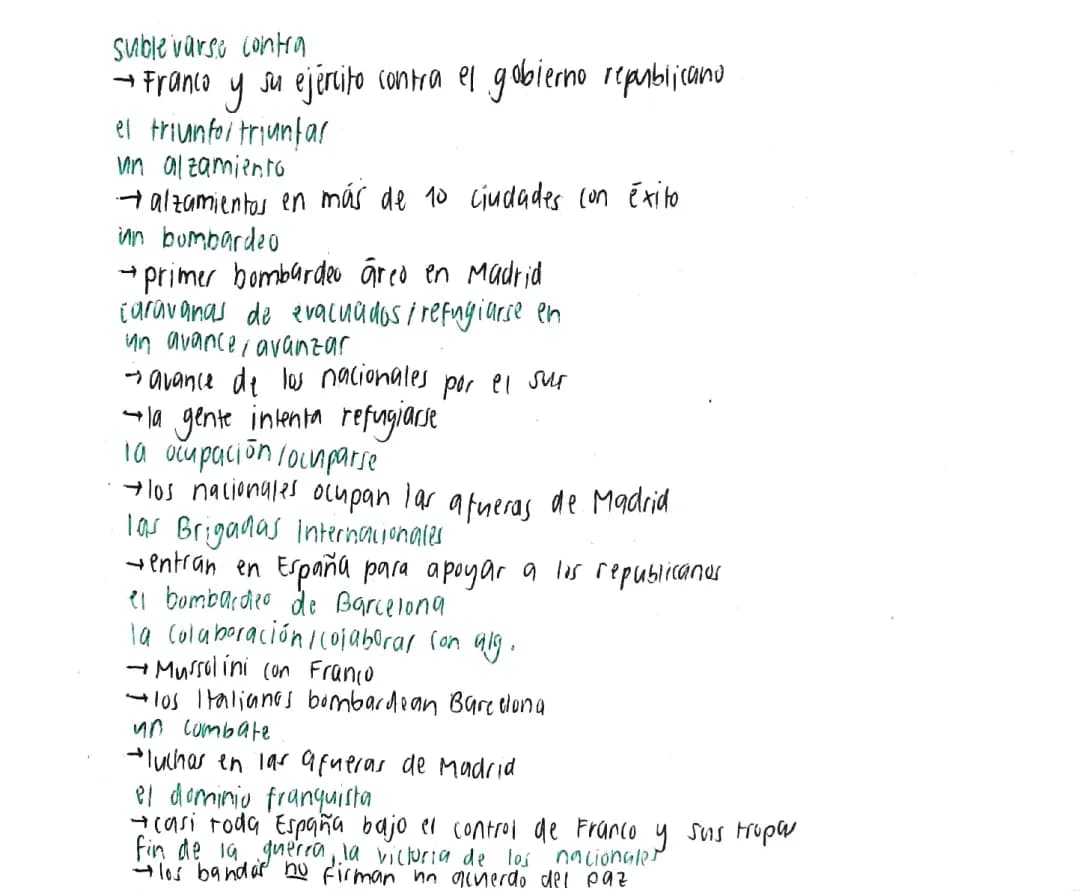 sublevarse contra
→ Franco y su ejército contra el gobierno republicano
el triunfo/triunfar
un alzamiento
→ alzamientos en más de 10 ciudades con éxito
un bombardeo
→ primer bombardeo áreo en Madrid
caravanas de evacuados/refugiarse en
un avance/avanzar
→ avance de los nacionales por el sur
→ la gente intenta refugiarse
la ocupación/ocuparse
→ los nacionales ocupan las afueras de Madrid
las Brigadas Internacionales
→ entran en España para apoyar a los republicanos
el bombardeo de Barcelona
la colaboración/colaborar con alg.
→ Mussolini con Franco
→ los Italianos bombardean Barcelona
un combate
→ luchas en las afueras de Madrid
el dominio franquista
→ casi toda España bajo el control de Franco y sus tropas
fin de la guerra, la victoria de los nacionales
→ los bandos no firman un acuerdo del paz